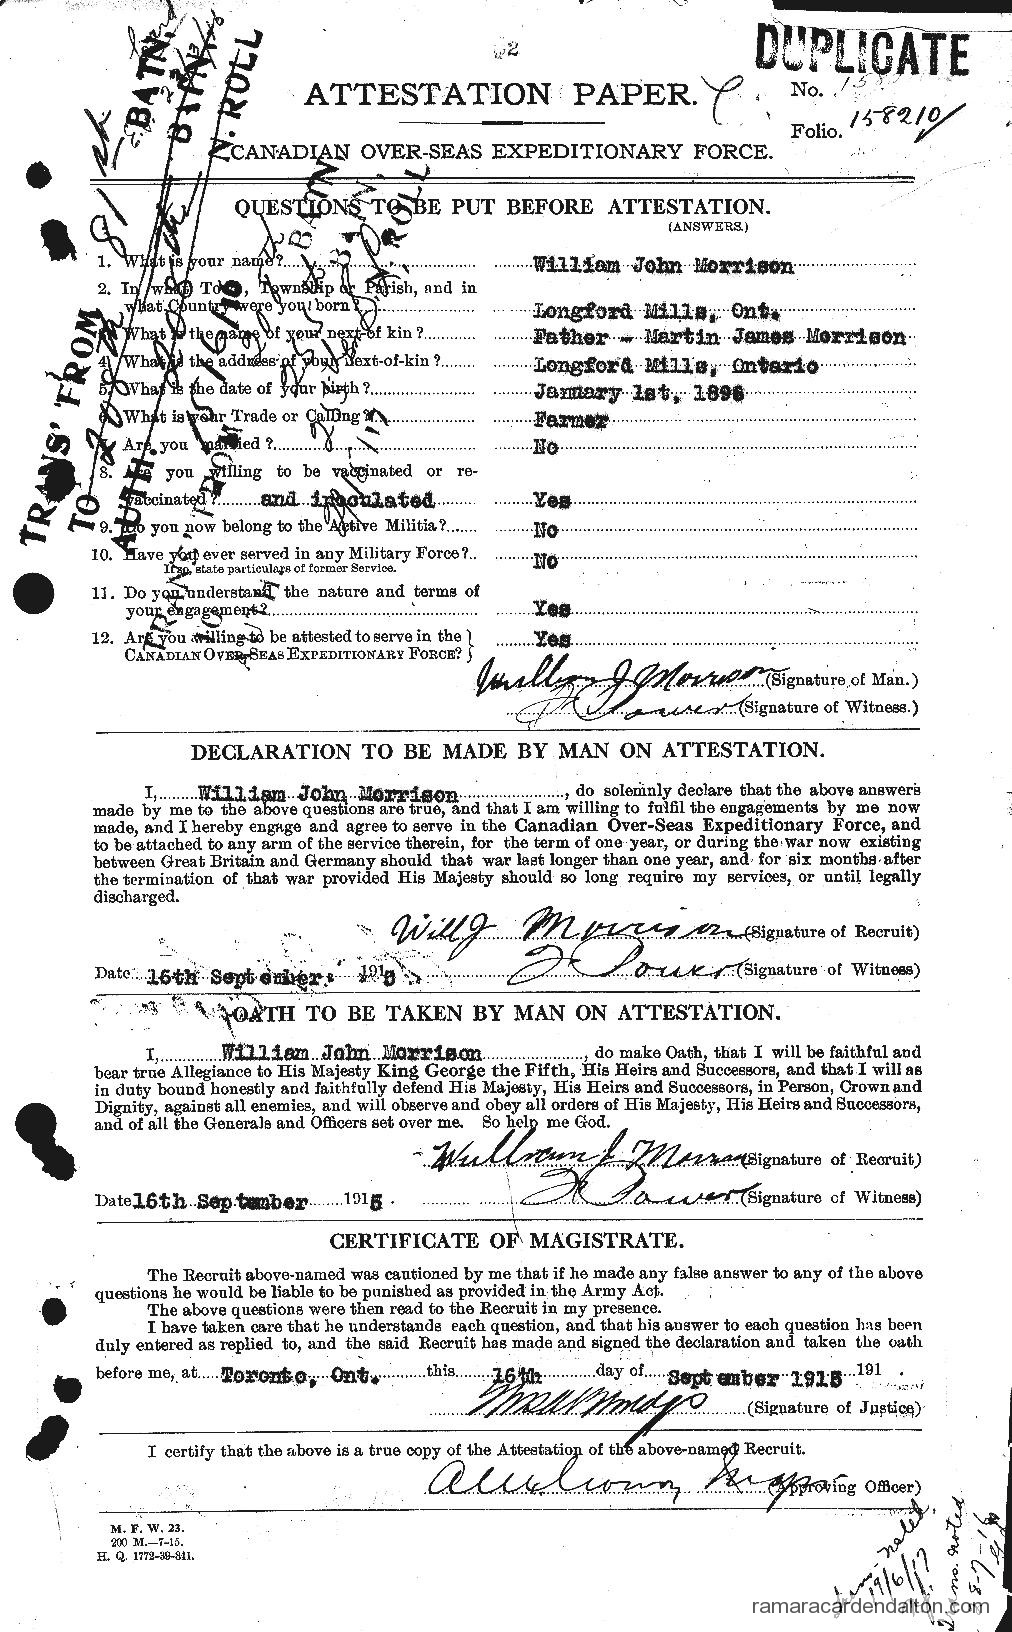 DUPLICATE
2
ATTESTATION PAPER.
No.
Folio. 158210
CANADIAN OVER-SEAS EXPEDITIONARY FORCE.
QUESTIONS TO BE PUT BEFORE ATTESTATION.
(ANSWERS.)
1. What is your name? William John Morrison
2. In what Town, Township or Parish, and in
what Country were you born? Longford Mills, Ont.
3. What is the name of your next-of kin? Father - Martin James Morrison
4. What is the address of your next-of-kin? Longford Mills, Ontario
5. What is the date of your birth? January 1st, 1896
6. What is your Trade or Calling? Farmer
7. Are you married? No
8. Are you willing to be vaccinated or re-
vaccinated? and inoculated Yes
9. Do you now belong to the Active Militia? No
10. Have you ever served in any Military Force? No
If so, state particulars of former Service.
11. Do you understand the nature and terms of
your engagement? Yes
12. Are you willing to be attested to serve in the Yes
CANADIAN OVER-SEAS EXPEDITIONARY FORCE?
William J Morrison (Signature of Man.)
Power (Signature of Witness.)
TRANS' FROM 81st BATN.
TO BATN
AUTH. N. ROLL
TRANS. FROM BATN
TO BATN.
N. ROLL
DECLARATION TO BE MADE BY MAN ON ATTESTATION.
I, William John Morrison, do solemnly declare that the above answers
made by me to the above questions are true, and that I am willing to fulfil the engagements by me now
made, and I hereby engage and agree to serve in the Canadian Over-Seas Expeditionary Force, and
to be attached to any arm of the service therein, for the term of one year, or during the war now existing
between Great Britain and Germany should that war last longer than one year, and for six months after
the termination of that war provided His Majesty should so long require my services, or until legally
discharged.
Will J Morrison (Signature of Recruit)
Date 16th September. 1915. Power (Signature of Witness)
OATH TO BE TAKEN BY MAN ON ATTESTATION.
I, William John Morrison, do make Oath, that I will be faithful and
bear true Allegiance to His Majesty King George the Fifth, His Heirs and Successors, and that I will as
in duty bound honestly and faithfully defend His Majesty, His Heirs and Successors, in Person, Crown and
Dignity, against all enemies, and will observe and obey all orders of His Majesty, His Heirs and Successors,
and of all the Generals and Officers set over me. So help me God.
William J Morrison (Signature of Recruit)
Date 16th September 1915. Power (Signature of Witness)
CERTIFICATE OF MAGISTRATE.
The Recruit above-named was cautioned by me that if he made any false answer to any of the above
questions he would be liable to be punished as provided in the Army Act.
The above questions were then read to the Recruit in my presence.
I have taken care that he understands each question, and that his answer to each question has been
duly entered as replied to, and the said Recruit has made and signed the declaration and taken the oath
before me, at Toronto, Ont. this 16th day of September 1915 191 .
(Signature of Justice)
I certify that the above is a true copy of the Attestation of the above-named Recruit.
(Approving Officer)
M. F. W. 23.
200 M.—7-15.
H. Q. 1772-39-811.
Trans. noted
19/6/17
Trans. noted
28-7-16
ramaracardendalton.com